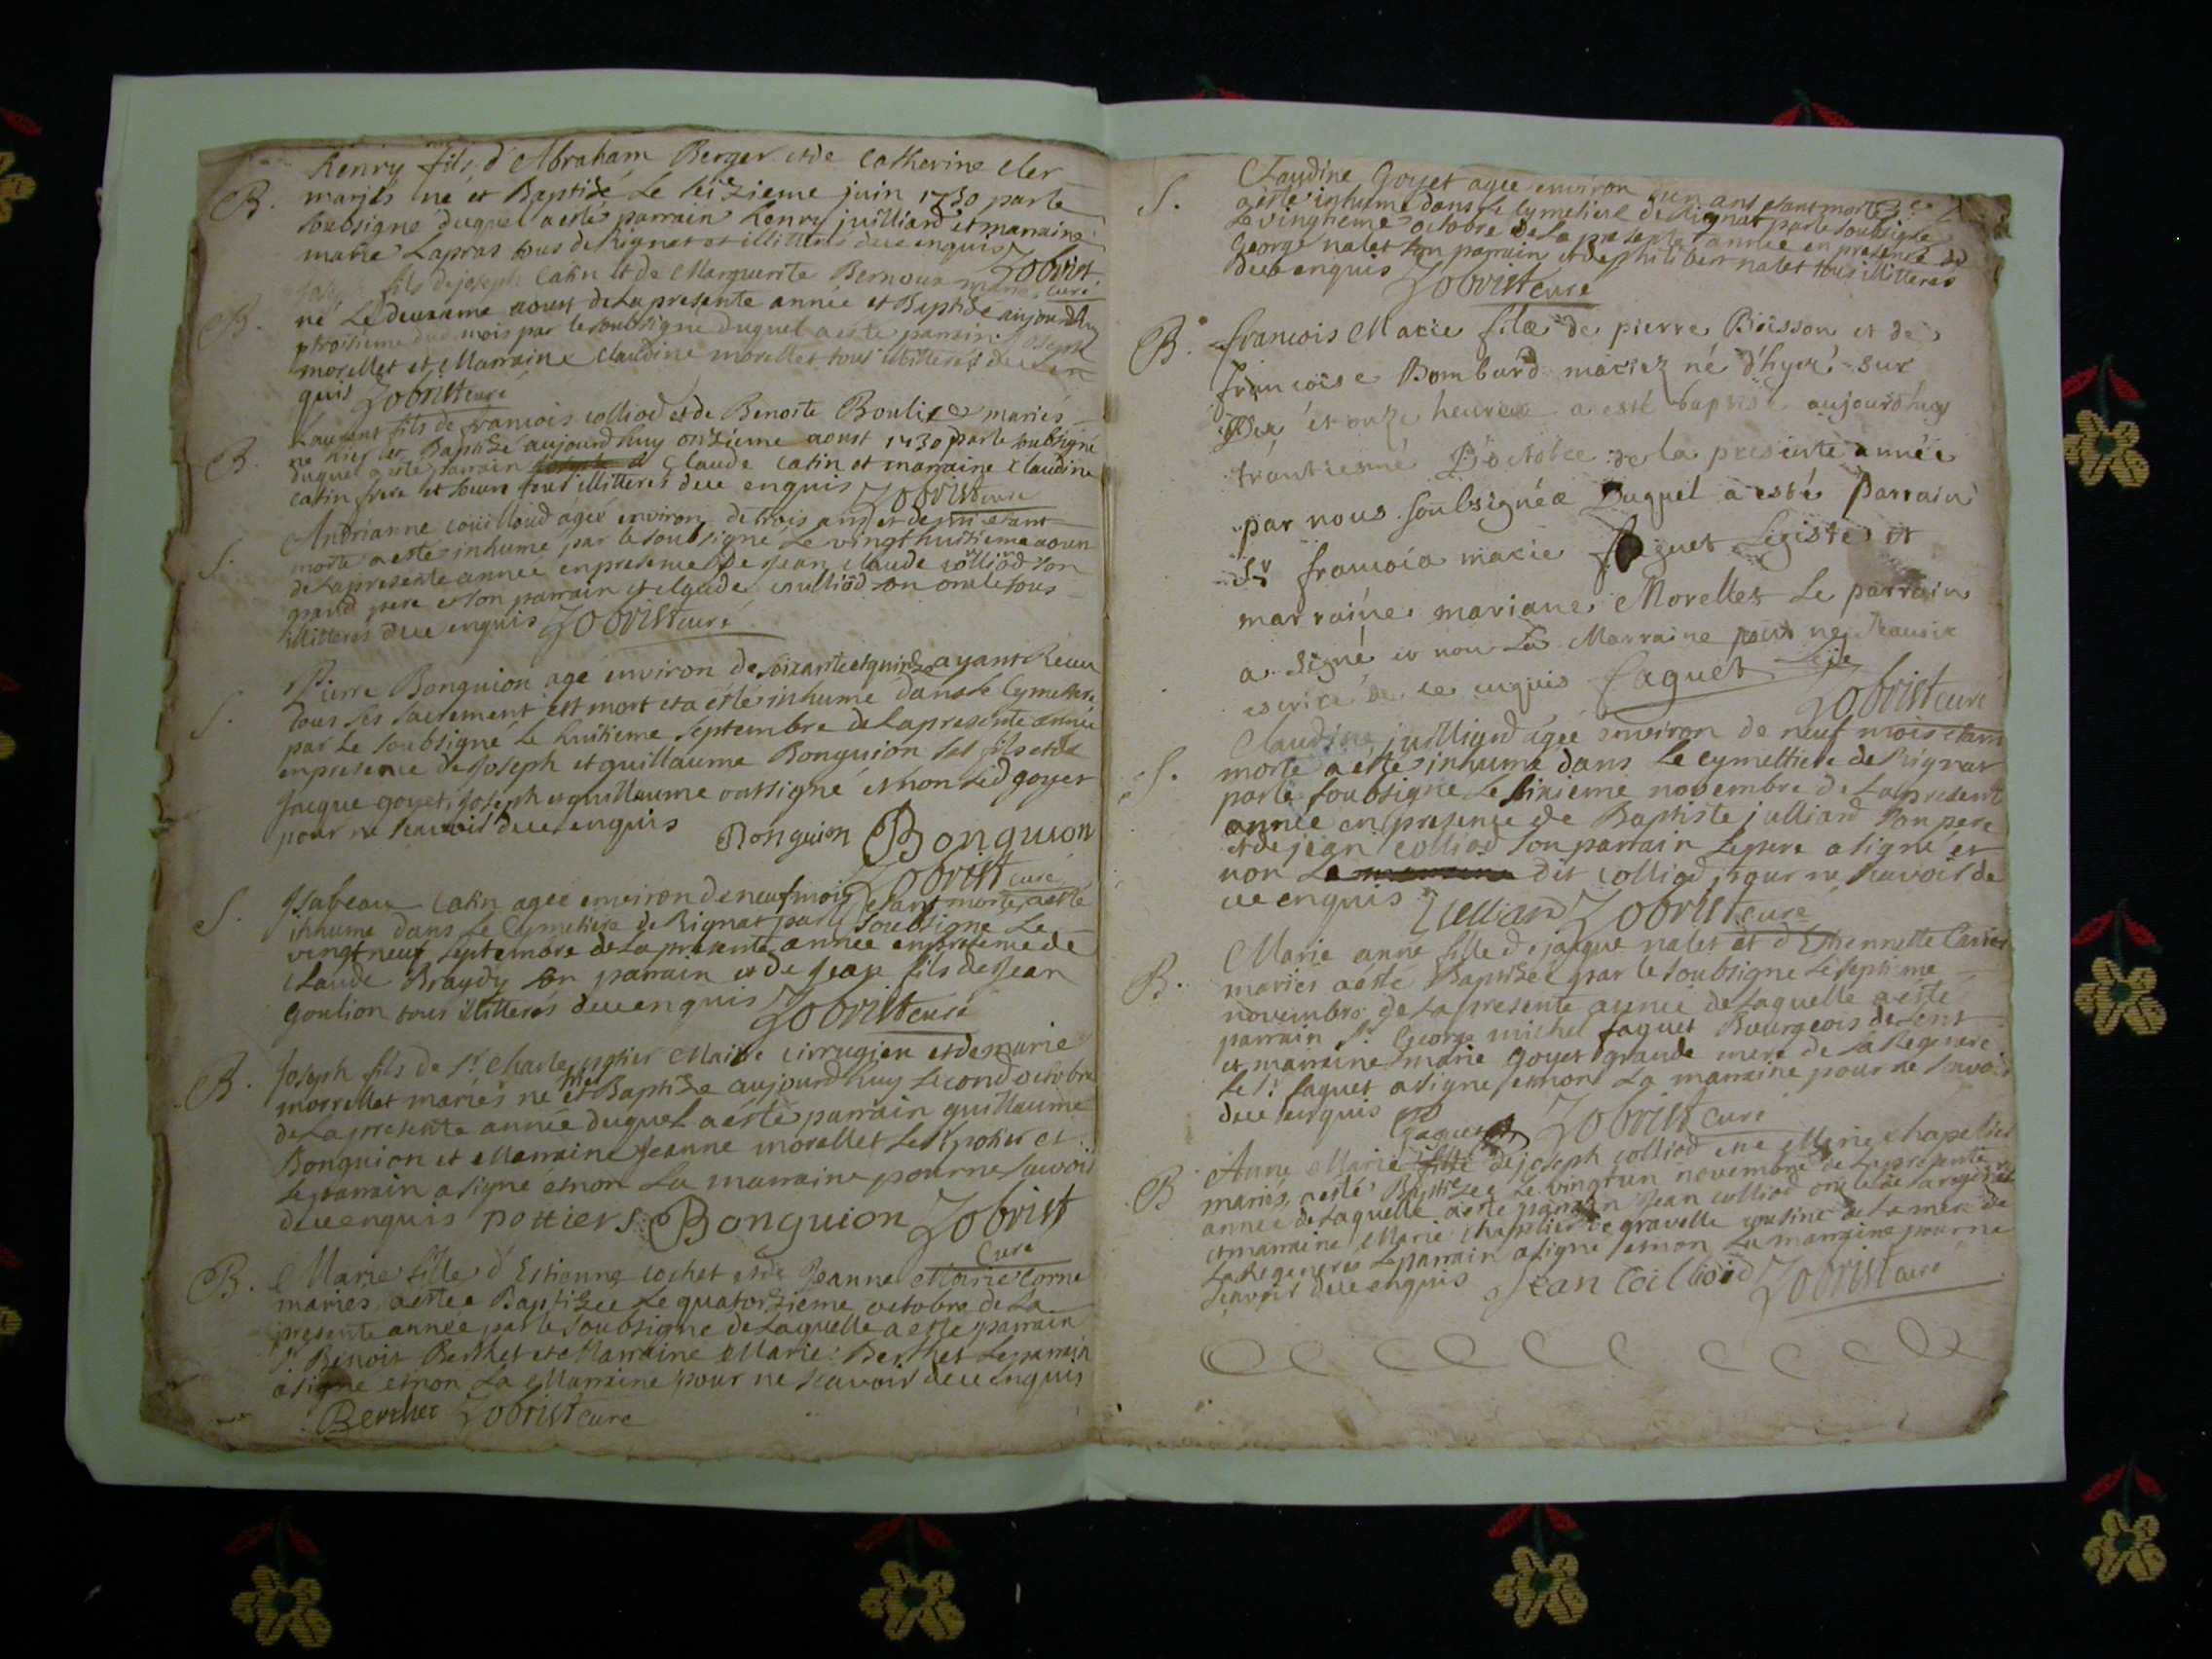 henry fils d'Abraham Berger et de Catherine Cler
B. mariés né et Baptizé Le seizieme juin 1730 par le
soubsigné duquel a estés parrain henry juilliard et marraine
marie Lapras tous de Rignat et illitteres de ce enquis Zobrist
curé
fils de joseph Catin et de Marguerite Bernoux mariés
B. né Le deuxieme aoust de La presente année et Baptizé aujourdhuy
troisieme dud mois par le soubsigné duquel a este parrain Joseph
morellet et Marraine Claudine morellet tous illitteres de ce en
quis Zobrist curé
Laurent fils de francois colliod et de Benoite Boulier mariés
B. né hier et Baptizé aujourdhuy onzieme aoust 1730 par le soubsigné
duquel a esté parrain Claude Catin et marraine Claudine
Catin frere et soeur tous illitteres de ce enquis Zobrist curé
Andrianne couilloud agée environ de trois ans et demi etant
S. morte a esté inhumé par le soubsigné Le vingt huitieme aoust
de La presente année en presence de Jean Claude colliod son
grand pere et son parrain et Claude culliod son oncle tous
illitteres de ce enquis Zobrist curé
Pierre Bonguion agé environ de soixante et quinze ayant Receu
S. tous ses sacrement est mort et a esté inhumé dans le Cymetiere
par Le soubsigné Le huitieme septembre de La presente année
en presence de Joseph et guillaume Bonguion ses fils et de
Jacque goyet, Joseph et guillaume ont signé et non Led goyet
pour ne scavoir de ce enquis Bonguion Bonguion
Zobrist curé
S. Ysabeau Catin agée environ de neuf mois etant morte a esté
inhumé dans Le Cymetiere de Rignat par le soubsigné Le
vingt neuf septembre de La presente année en presence de
Claude Braydy son parrain et de Jean fils de Jean
goulion tous illitteres de ce enquis Zobrist curé
B. Joseph fils de Sr Charle potier Maitre cirrugien et de marie
morrellet mariés né et Baptizé aujourdhuy second octobre
de La presente année duquel a esté parrain guillaume
Bonguion et Marraine Jeanne morellet Le Sr potier et
Le parrain a signé et non La marraine pour ne scavoir
de ce enquis pottiers Bonguion Zobrist
Curé
B. Marie fille d'Estienne cochet et de Jeanne Marie Corne
mariés, a estée Baptizée Le quatorzieme octobre de La
presente année par le soubsigné de Laquelle a este parrain
Sr Benoit Berthet et Marraine Marie Berthet Le parrain
a signé et non La Marraine pour ne scavoir de ce enquis
Berthet Zobrist curé
Claudine Goyet agée environ d'un ans etant morte
S. a esté inhumé dans Le Cymetiere de Rignat par le soubsigné
Le vingtieme octobre de La presente année en presence de
George nalet son parrain et de philibert nalet tous illitteres
de ce enquis Zobrist curé
B. francois Marie fils de pierre Boisson et de
francoise Bombard mariez né d'hyer sur
Dix et onze heures a esté baptisé aujourdhuy
trantieme D'octobre de la presente année
par nous soubsignés Duquel a esté Parrain
Sr francois marie faguet Legiste et
marraine mariane Morellet Le parrain
a signé et non La Marraine pour ne scavoir
escrire de ce enquis faguet
Zobrist curé
Claudine juilliard agée environ de neuf mois etant
S. morte a esté inhumé dans Le cymettiere de Rignat
par le soubsigné Le sixieme novembre de La present
année en presence de Baptiste julliard son pere
et de jean colliod son parrain Le pere a signé et
non Le dit colliod pour ne scavoir de
ce enquis Juilliard Zobrist curé
Marie anne fille de jacque nalet et d'Estiennette
B. mariés a esté Baptizée par le soubsigné Le septieme
novembre de La presente année de Laquelle a esté
parrain Sr George michel faguet Bourgeois de
et marraine marie Goyet grande mere de La Regeneré
Le Sr faguet a signé et non La marraine pour ne scavoir
de ce enquis faguet Zobrist curé
Anne Marie fille de joseph colliod et de Marie Chapelier
B mariés, a esté Baptizée Le vingt un novembre de La presente
année de Laquelle a este parrain Jean colliod oncle de La regeneré
et marraine Marie Chapelier de gravelle cousine de La mere de
La Regeneré Le parrain a signé et non La marraine pour ne
scavoir de ce enquis Jean Coilliod Zobrist curé